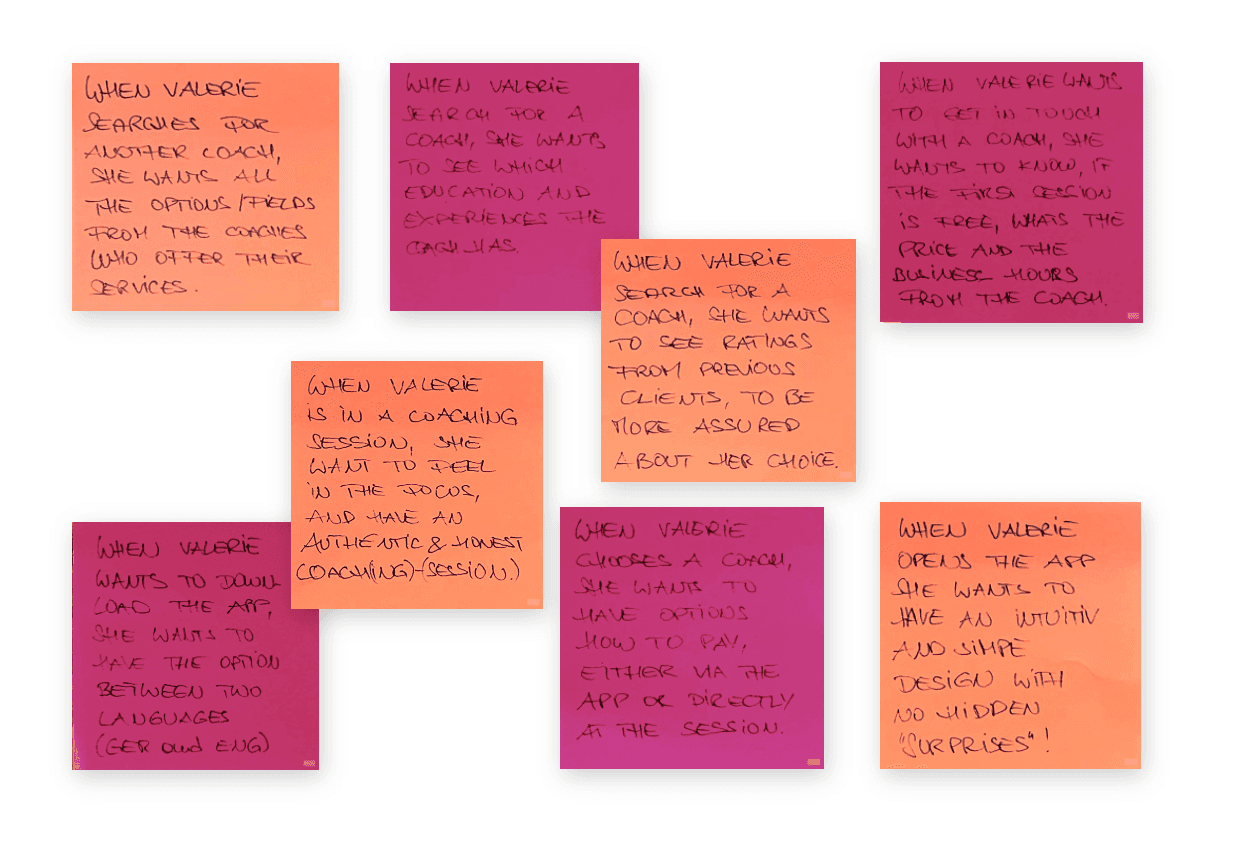 WHEN VALERIE
SEARCHES FOR
ANOTHER COACH,
SHE WANTS ALL
THE OPTIONS/FIELDS
FROM THE COACHES
WHO OFFER THEIR
SERVICES.
WHEN VALERIE
SEARCH FOR A
COACH, SHE WANTS
TO SEE WHICH
EDUCATION AND
EXPERIENCES THE
COACH HAS.
WHEN VALERIE WANTS
TO GET IN TOUCH
WITH A COACH, SHE
WANTS TO KNOW, IF
THE FIRST SESSION
IS FREE, WHATS THE
PRICE AND THE
BUSINESS HOURS
FROM THE COACH.
WHEN VALERIE
SEARCH FOR A
COACH, SHE WANTS
TO SEE RATINGS
FROM PREVIOUS
CLIENTS, TO BE
MORE ASSURED
ABOUT HER CHOICE.
WHEN VALERIE
IS IN A COACHING
SESSION, SHE
WANT TO FEEL
IN THE FOCUS,
AND HAVE AN
AUTHENTIC & HONEST
COACH(ING)-(SESSION.)
WHEN VALERIE
WANTS TO DOWN-
LOAD THE APP,
SHE WANTS TO
HAVE THE OPTION
BETWEEN TWO
LANGUAGES
(GER and ENG)
WHEN VALERIE
CHOOSES A COACH,
SHE WANTS TO
HAVE OPTIONS
HOW TO PAY,
EITHER VIA THE
APP OR DIRECTLY
AT THE SESSION.
WHEN VALERIE
OPENS THE APP
SHE WANTS TO
HAVE AN INTUITIV
AND SIMPE
DESIGN WITH
NO HIDDEN
"SURPRISES"!